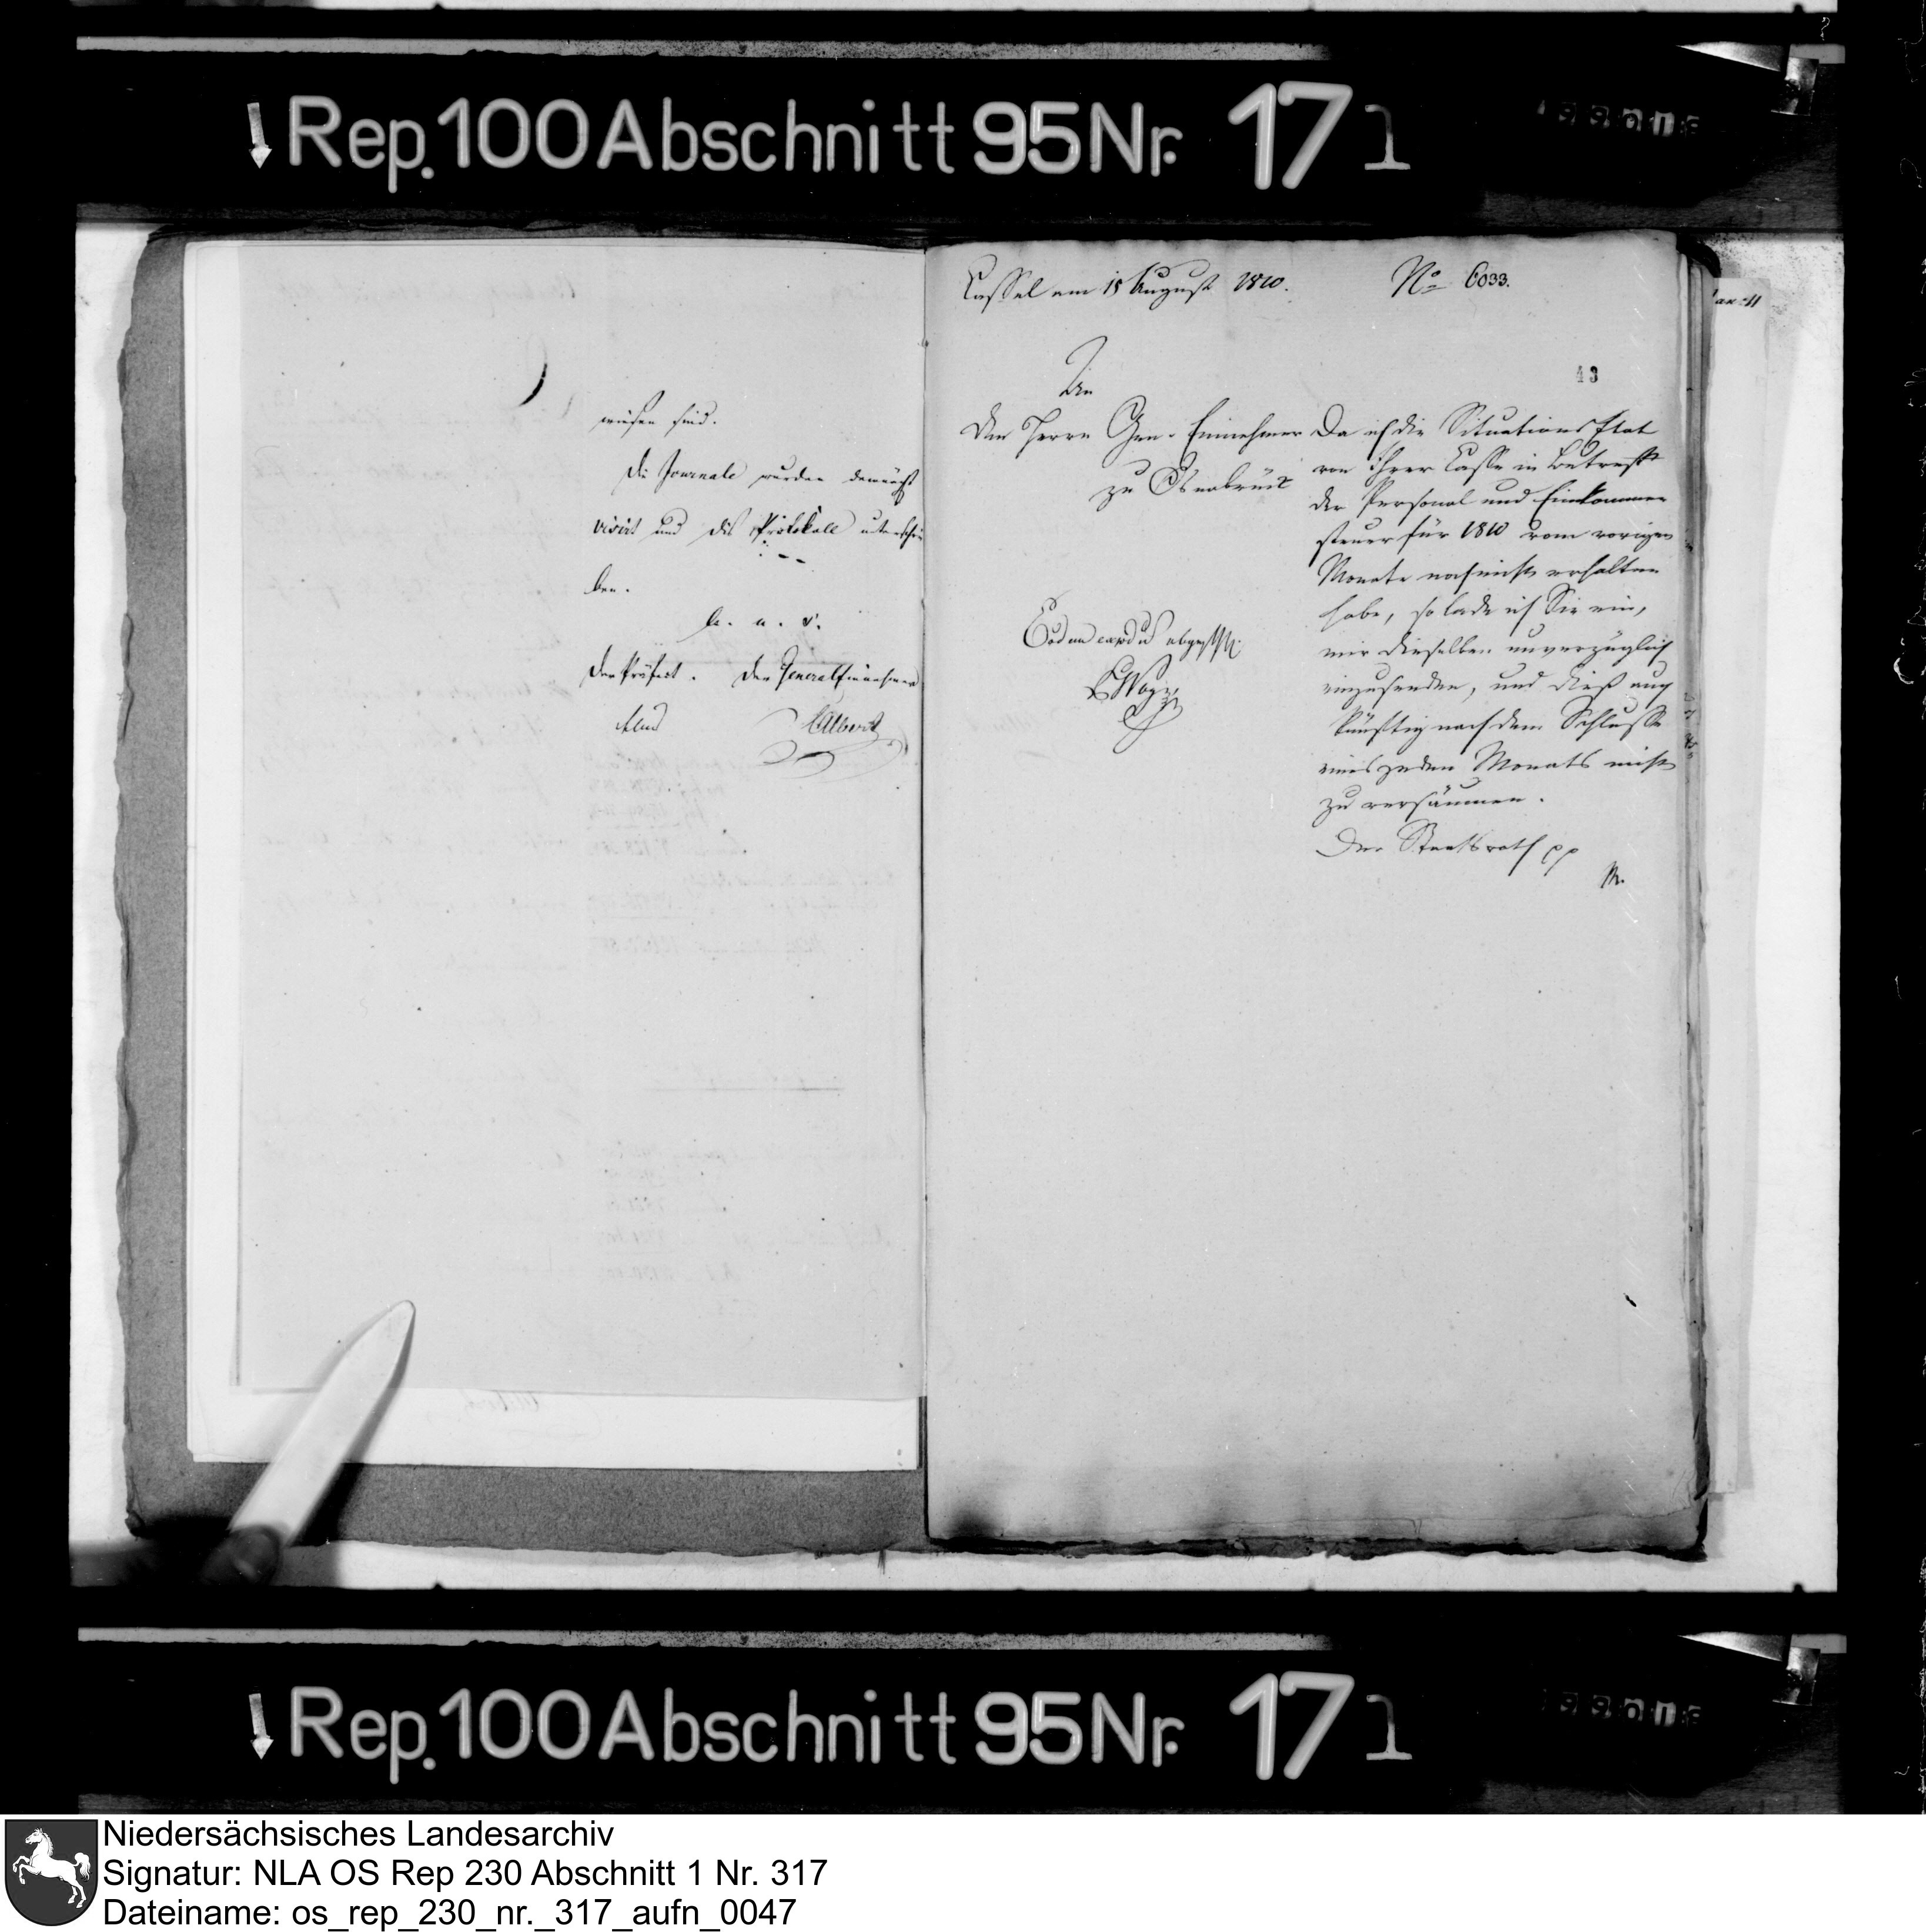 Rep. 100 Abschnitt 95 Nr. 171
wiesen sind.
Die Journale wurden demnächst
visirt und die Protokolle unterschrie-
ben.
a. u. s.
Der Präfect. Der Generaleinnehmer
Albert
Cassel am 15 August 1810. No 6033.
43
An
den Herrn Gen. Einnehmer
zu Osnabrück
Eodem
Da ich die Situations Etat
von Ihrer Casse in Betreff
der Personal und Einkommen
steuer für 1810 vom vorigen
Monate noch nicht erhalten
habe, so lade ich Sie ein,
mir dieselben unverzüglich
einzusenden, und dieß auch
künftig nach dem Schlusse
eines jeden Monats nicht
zu versäumen.
Der Staatsrath pp
Rep. 100 Abschnitt 95 Nr. 171
Niedersächsisches Landesarchiv
Signatur: NLA OS Rep 230 Abschnitt 1 Nr. 317
Dateiname: os_rep_230_nr._317_aufn_0047